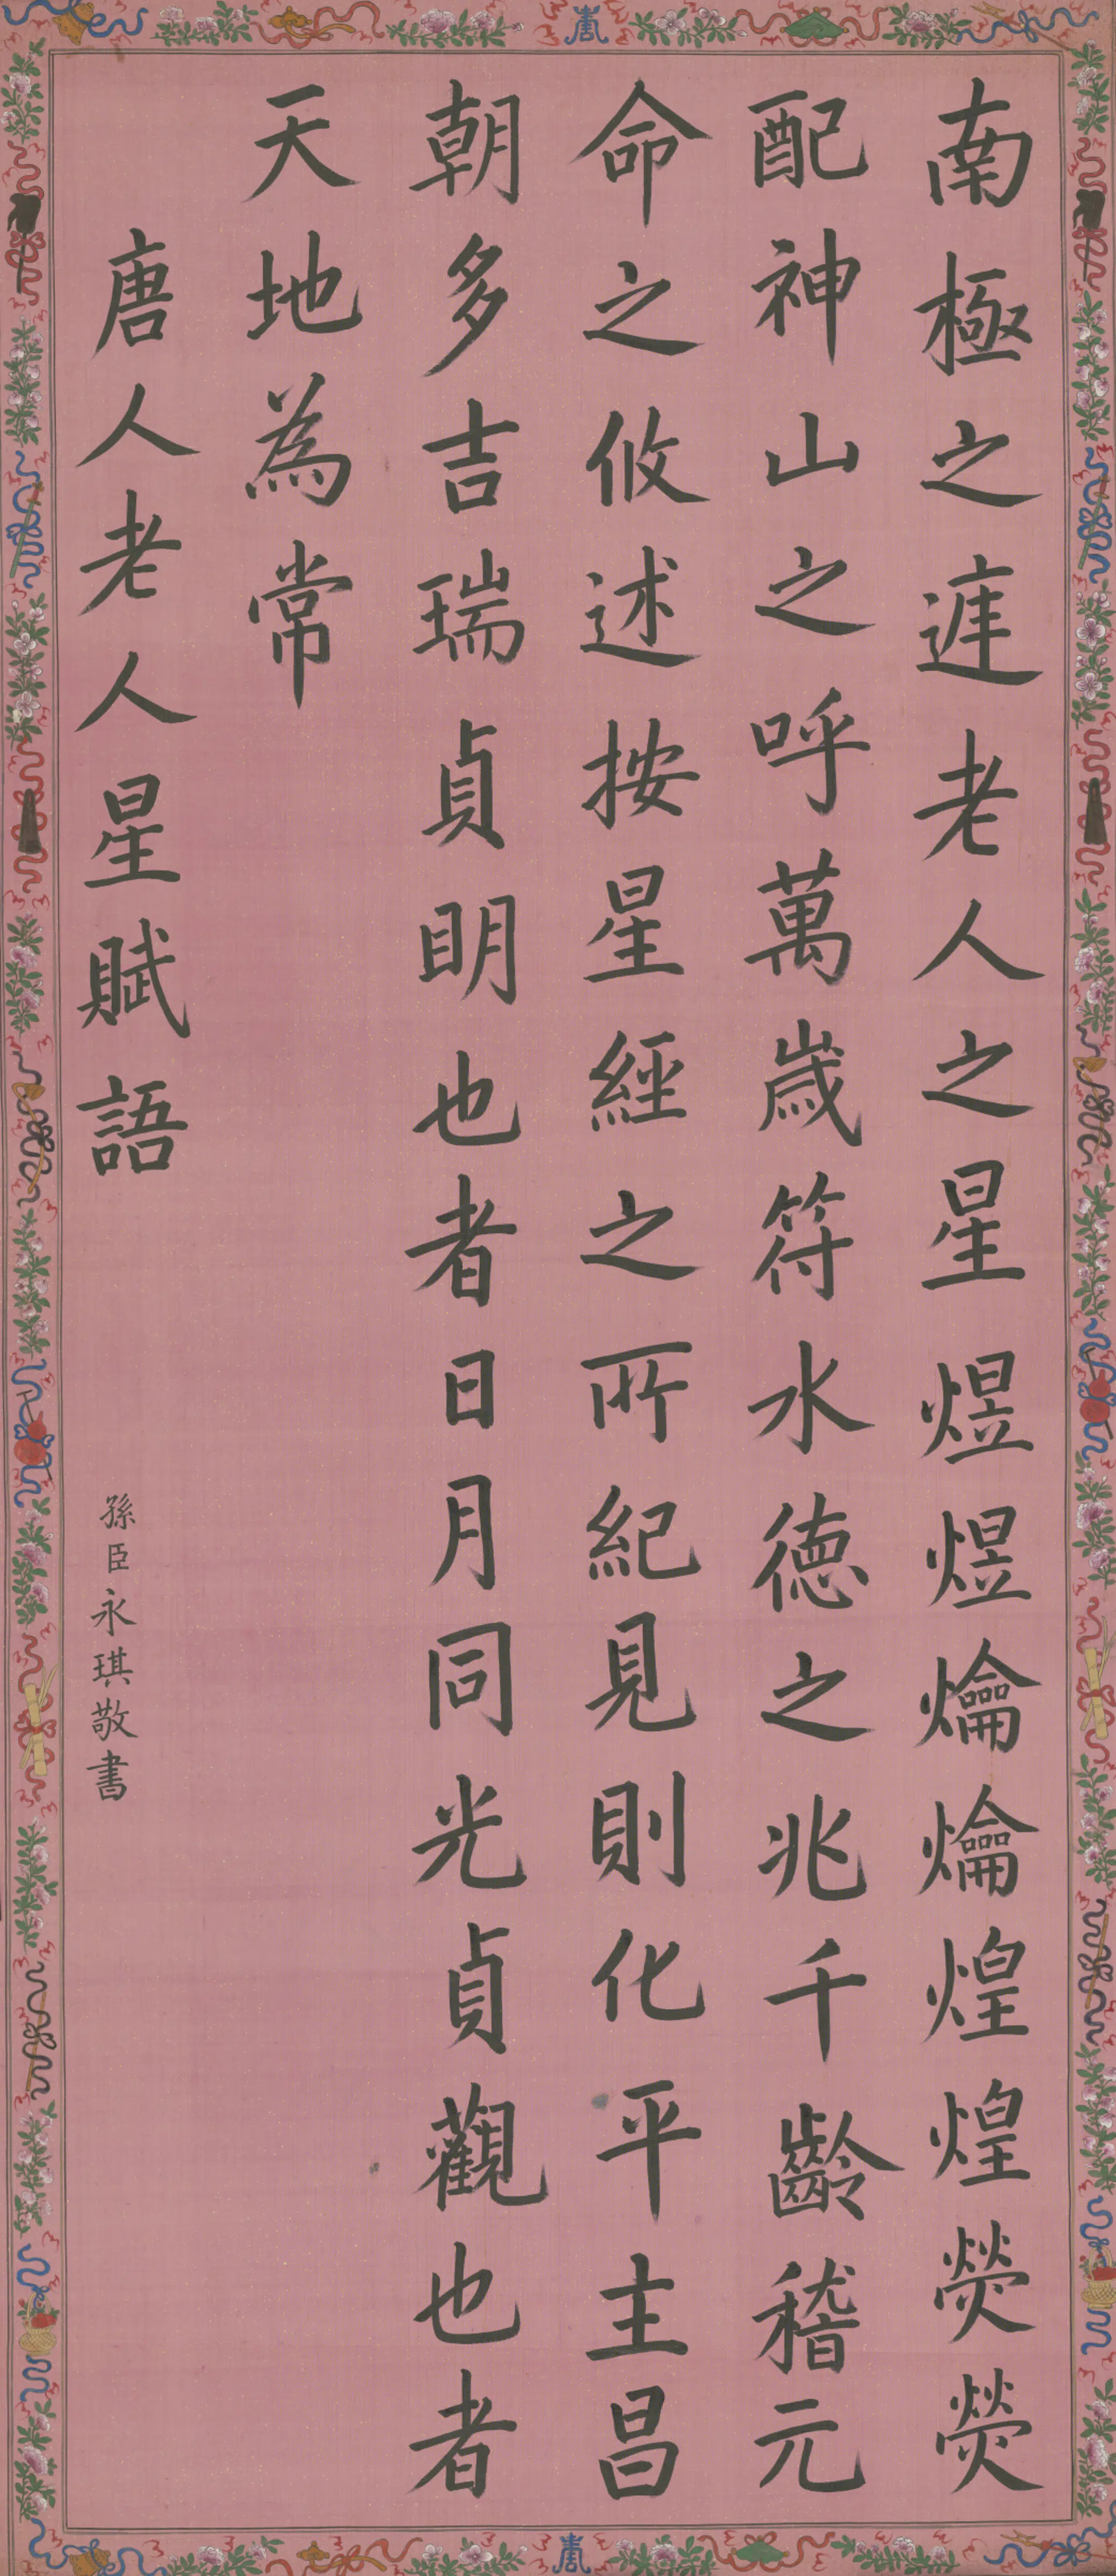 南極之遳老人之星煜煜爚爚煌煌熒熒
配神山之呼萬歲符水德之兆千齡稽元
命之攸述按星經之所紀見則化平主昌
朝多吉瑞貞明也者日月同光貞觀也者
天地為常
唐人老人星賦語
孫臣永琪敬書